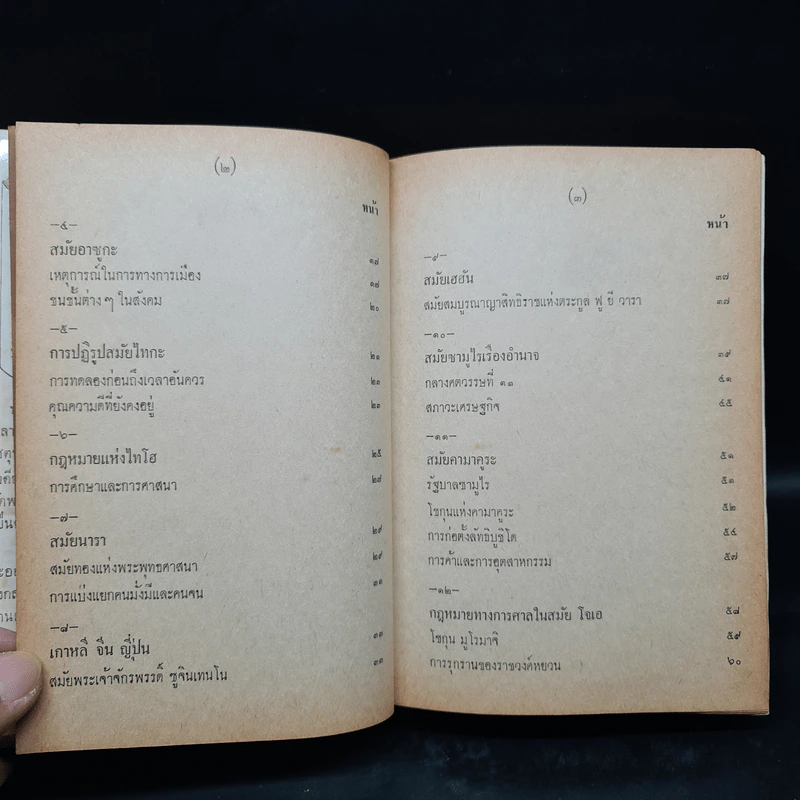 (๒)
หน้า
—๔—
สมัยอาซูกะ ๑๗
เหตุการณ์ในการทางการเมือง ๑๗
ชนชั้นต่างๆ ในสังคม ๒๐
—๕—
การปฏิรูปสมัยไทกะ ๒๑
การทดลองก่อนถึงเวลาอันควร ๒๓
คุณความดีที่ยังคงอยู่ ๒๓
—๖—
กฎหมายแห่งไทโฮ ๒๕
การศึกษาและการศาสนา ๒๗
—๗—
สมัยนารา ๒๙
สมัยทองแห่งพระพุทธศาสนา ๒๙
การแบ่งแยกคนมั่งมีและคนจน ๓๑
—๘—
เกาหลี จีน ญี่ปุ่น ๓๓
สมัยพระเจ้าจักรพรรดิ์ ซูจินเทนโน ๓๓
(๓)
หน้า
—๙—
สมัยเฮฮัน ๓๗
สมัยสมบูรณาญาสิทธิราชแห่งตระกูล ฟู ยี วารา ๓๗
—๑๐—
สมัยซามูไรเรืองอำนาจ ๓๙
กลางศตวรรษที่ ๑๑ ๔๑
สภาวะเศรษฐกิจ ๔๕
—๑๑—
สมัยคามาคูระ ๕๑
รัฐบาลซามูไร ๕๑
โชกุนแห่งคามาคูระ ๕๒
การก่อตั้งลัทธิบูชิโด ๕๔
การค้าและการอุตสาหกรรม ๕๗
—๑๒—
กฎหมายทางการศาลในสมัย โจเอ ๕๘
โชกุน มูโรมาจิ ๕๙
การรุกรานของราชวงค์หยวน ๖๐